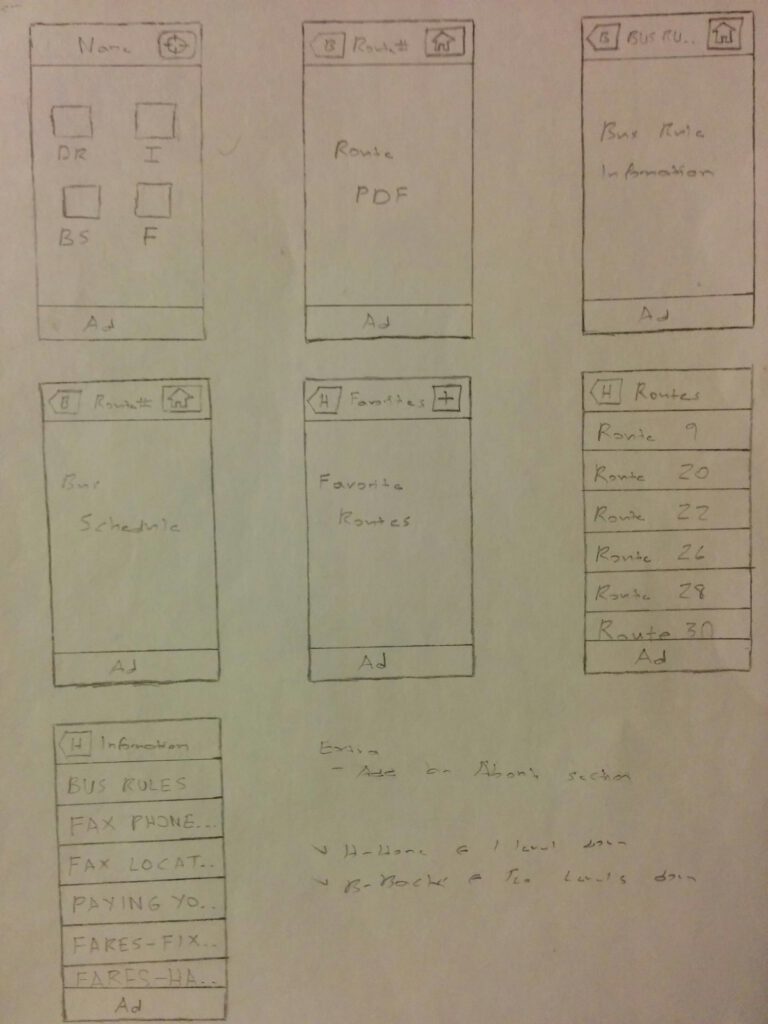 Name
DR I
BS F
Ad
B Route#
Route
PDF
Ad
B BUS RU..
Bus Rule
Information
Ad
B Route#
Bus
Schedule
Ad
H Favorites +
Favorite
Routes
Ad
H Routes
Route 9
Route 20
Route 22
Route 26
Route 28
Route 30
Ad
H Information
BUS RULES
FAX PHONE...
FAX LOCAT..
PAYING YO..
FARES-FIX..
FARES-HA..
Ad
Extra
- Add an About section
H-Home @ 1 level down
B-Back @ Two Levels down